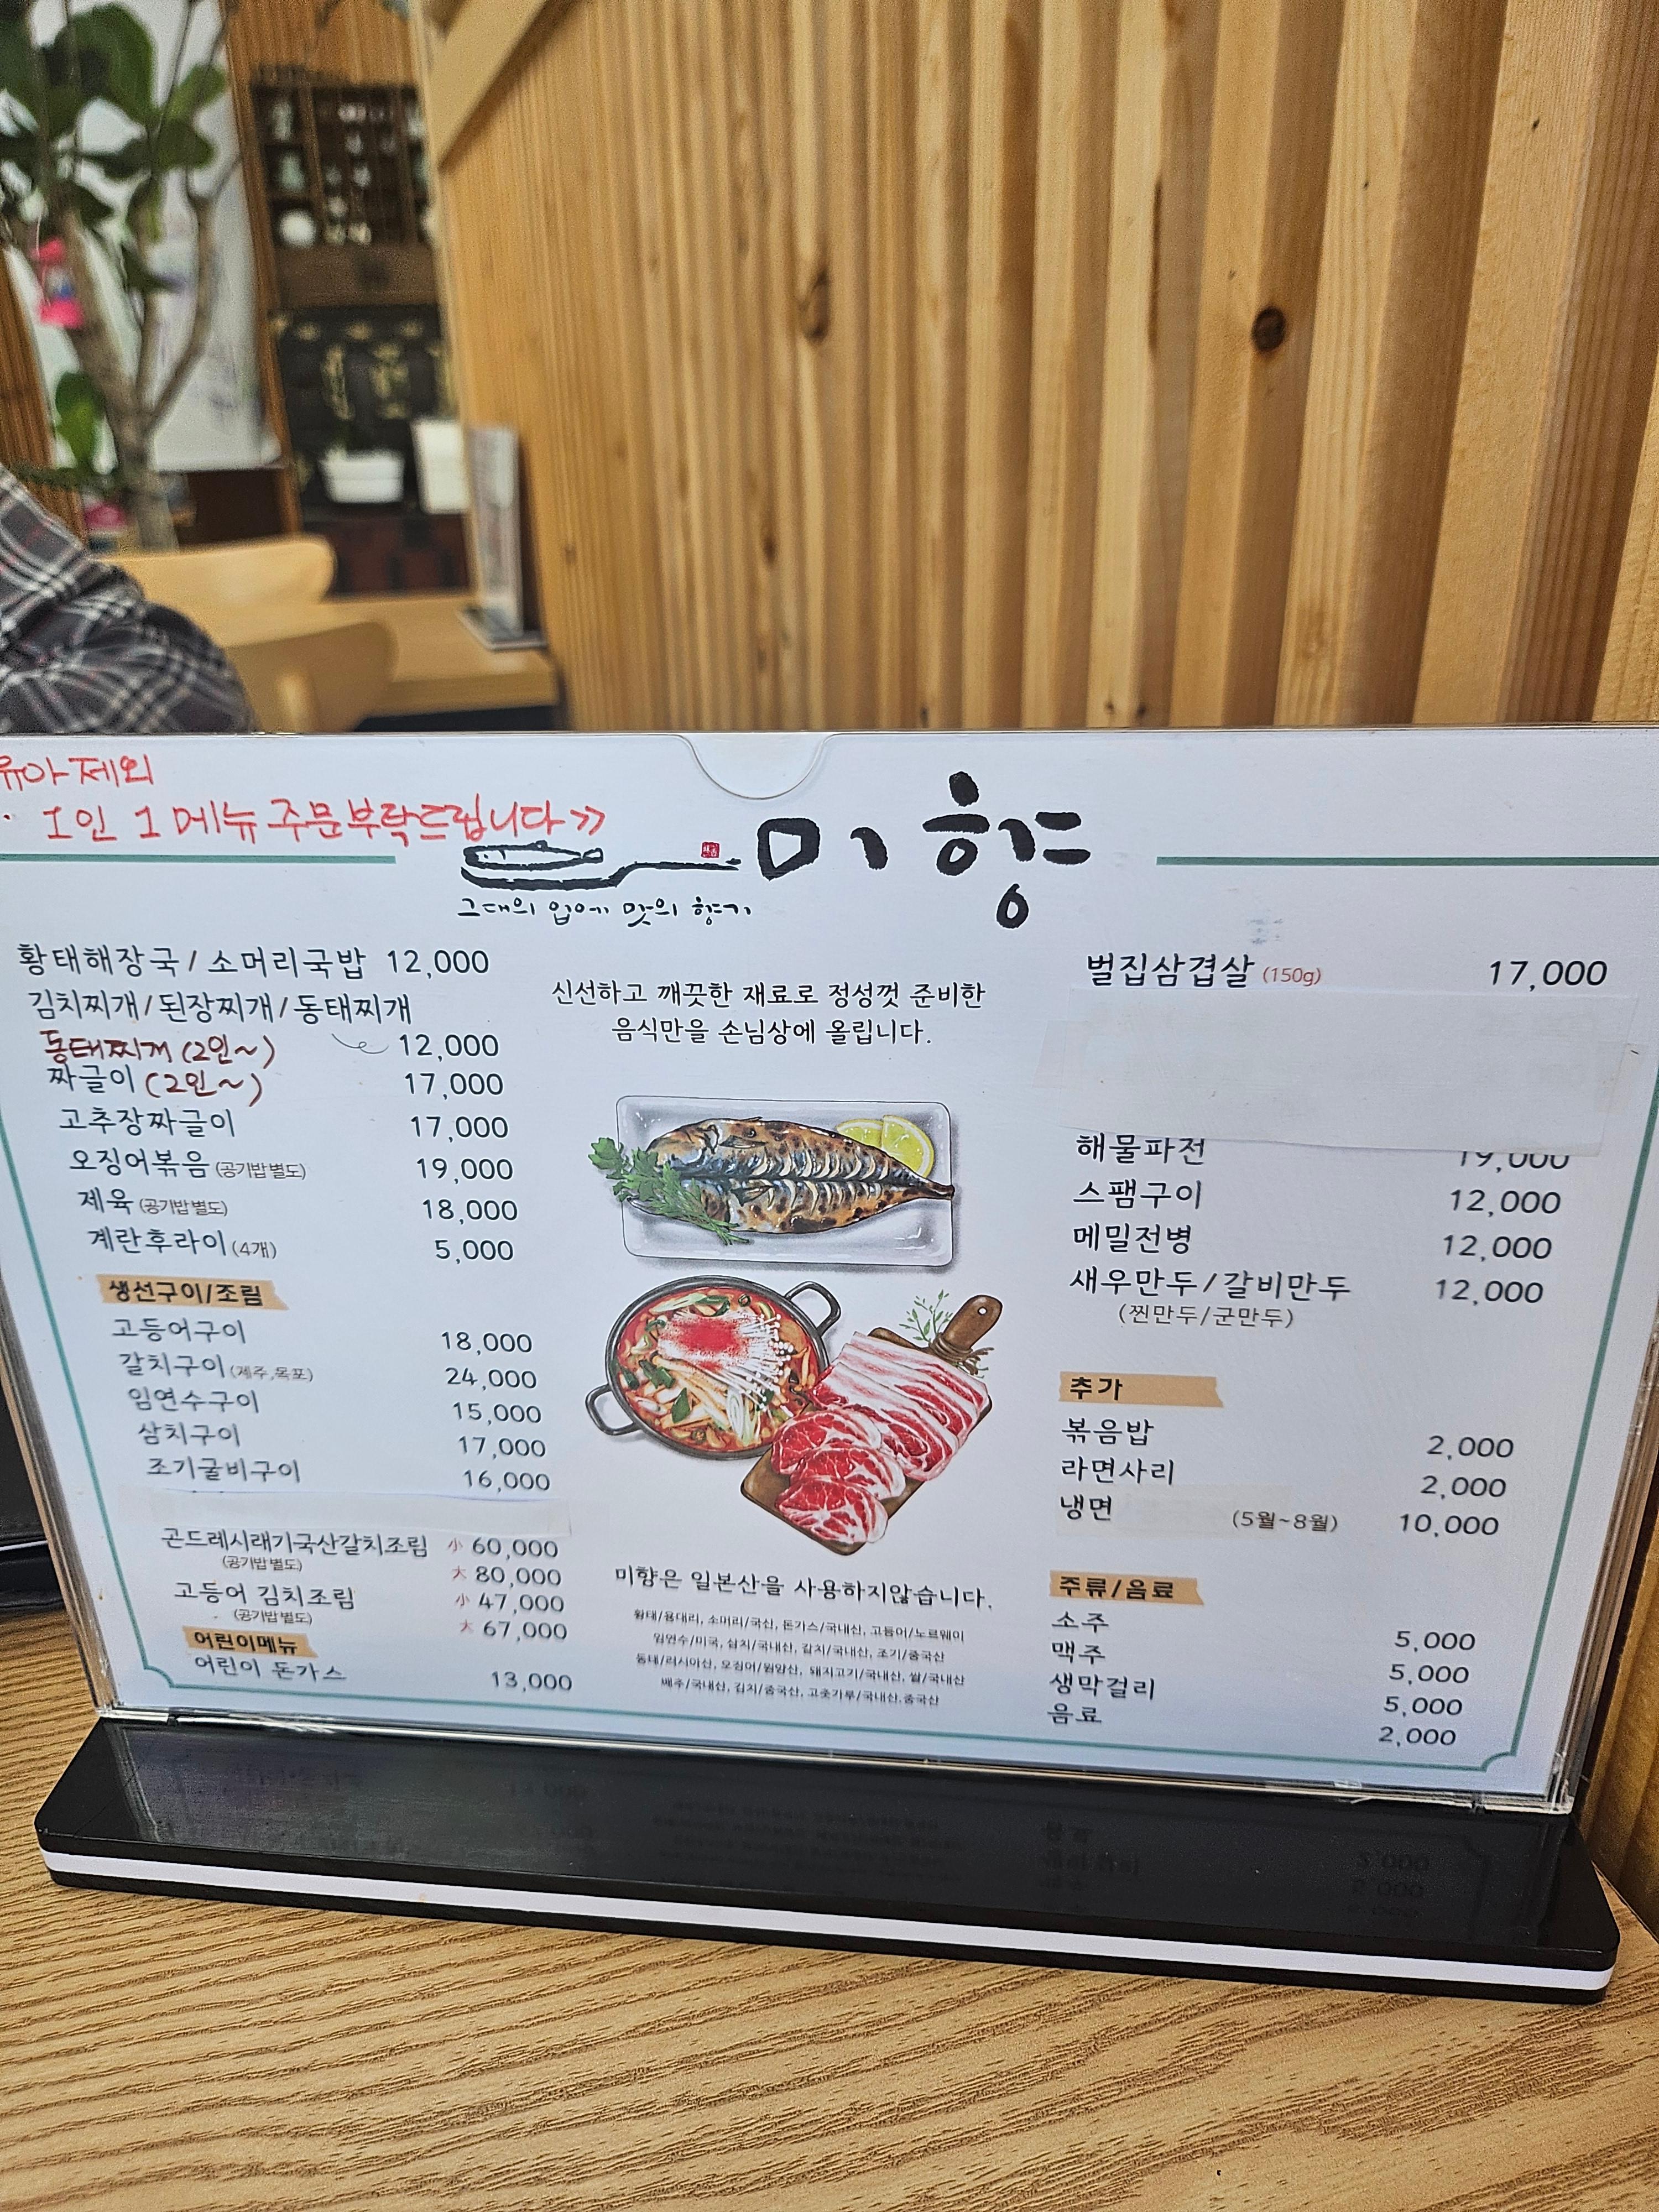 유아제외
· 1인 1메뉴 주문부탁드립니다>>
미향
그대의 입에 맛의 향기
황태해장국/소머리국밥 12,000
김치찌개/된장찌개/동태찌개
12,000
동태찌개 (2인~)
짜글이 (2인~) 17,000
고추장짜글이 17,000
오징어볶음 (공기밥별도) 19,000
제육 (공기밥별도) 18,000
계란후라이 (4개) 5,000
생선구이/조림
고등어구이 18,000
갈치구이 (제주,목포) 24,000
임연수구이 15,000
삼치구이 17,000
조기굴비구이 16,000
곤드레시래기국산갈치조림 小 60,000
(공기밥별도) 大 80,000
고등어 김치조림 小 47,000
(공기밥별도) 大 67,000
어린이메뉴
어린이 돈가스 13,000
신선하고 깨끗한 재료로 정성껏 준비한
음식만을 손님상에 올립니다.
미향은 일본산을 사용하지않습니다.
황태/용대리, 소머리/국산, 돈가스/국내산, 고등어/노르웨이
임연수/미국, 삼치/국내산, 갈치/국내산, 조기/중국산
동태/러시아산, 오징어/원양산, 돼지고기/국내산, 쌀/국내산
배추/국내산, 김치/중국산, 고춧가루/국내산,중국산
벌집삼겹살 (150g) 17,000
해물파전 19,000
스팸구이 12,000
메밀전병 12,000
새우만두/갈비만두 12,000
(찐만두/군만두)
추가
볶음밥 2,000
라면사리 2,000
냉면 (5월~8월) 10,000
주류/음료
소주 5,000
맥주 5,000
생막걸리 5,000
음료 2,000